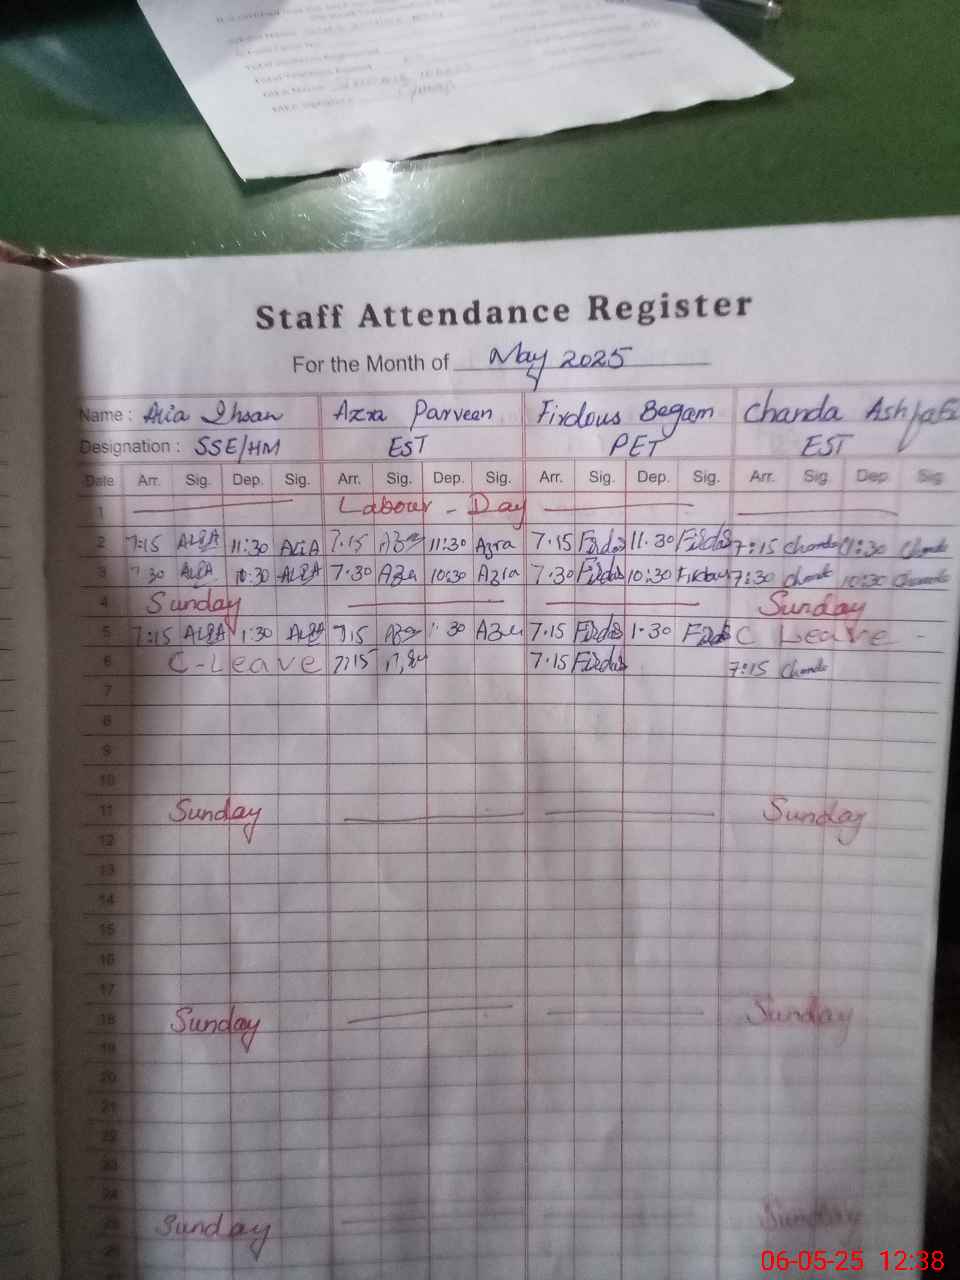 Staff Attendance Register
For the Month of May 2025
Name : Alia Ihsan Azra Parveen Firdous Begam Chanda Ashfaq
Designation : SSE/HM EST PET EST
Date Arr. Sig. Dep. Sig. Arr. Sig. Dep. Sig. Arr. Sig. Dep. Sig. Arr. Sig. Dep. Sig.
1 Labour - Day
2 7:15 11:30 7.15 Azra 11:30 Azra 7.15 Firdos 11.30 Firdos 7:15 Chanda 11:30 Chanda
3 7:30 10:30 7.30 Azra 10:30 Azra 7.30 Firdos 10:30 Firdous 7:30 Chanda 10:30 Chanda
4 Sunday Sunday
5 7:15 1:30 7:15 Azra 1:30 Azra 7.15 Firdos 1.30 Firdos C Leave -
6 C-Leave 7:15 7.15 Firdos 7:15 Chanda
7
8
9
10
11 Sunday Sunday
12
13
14
15
16
17
18 Sunday Sunday
19
20
21
22
23
24
25 Sunday Sunday
06-05-25 12:38